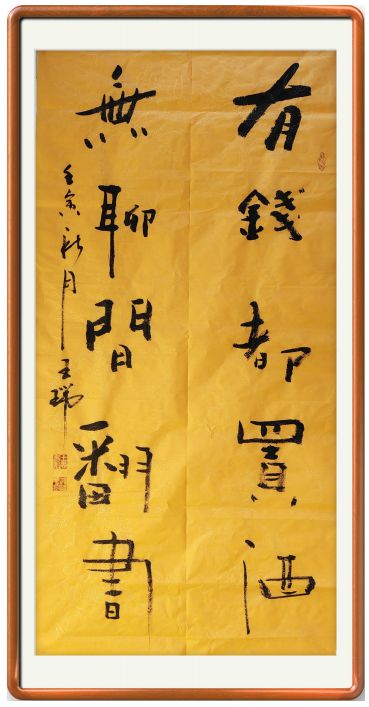 有錢都買酒
無聊間翻書
壬寅秋月 王瑞